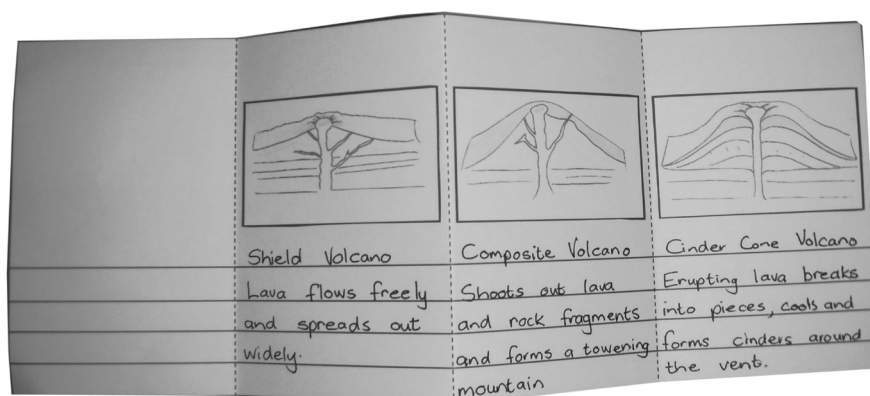 Shield Volcano
Lava flows freely
and spreads out
widely.
Composite Volcano
Shoots out lava
and rock fragments
and forms a towering
mountain
Cinder Cone Volcano
Erupting lava breaks
into pieces, cools and
forms cinders around
the vent.